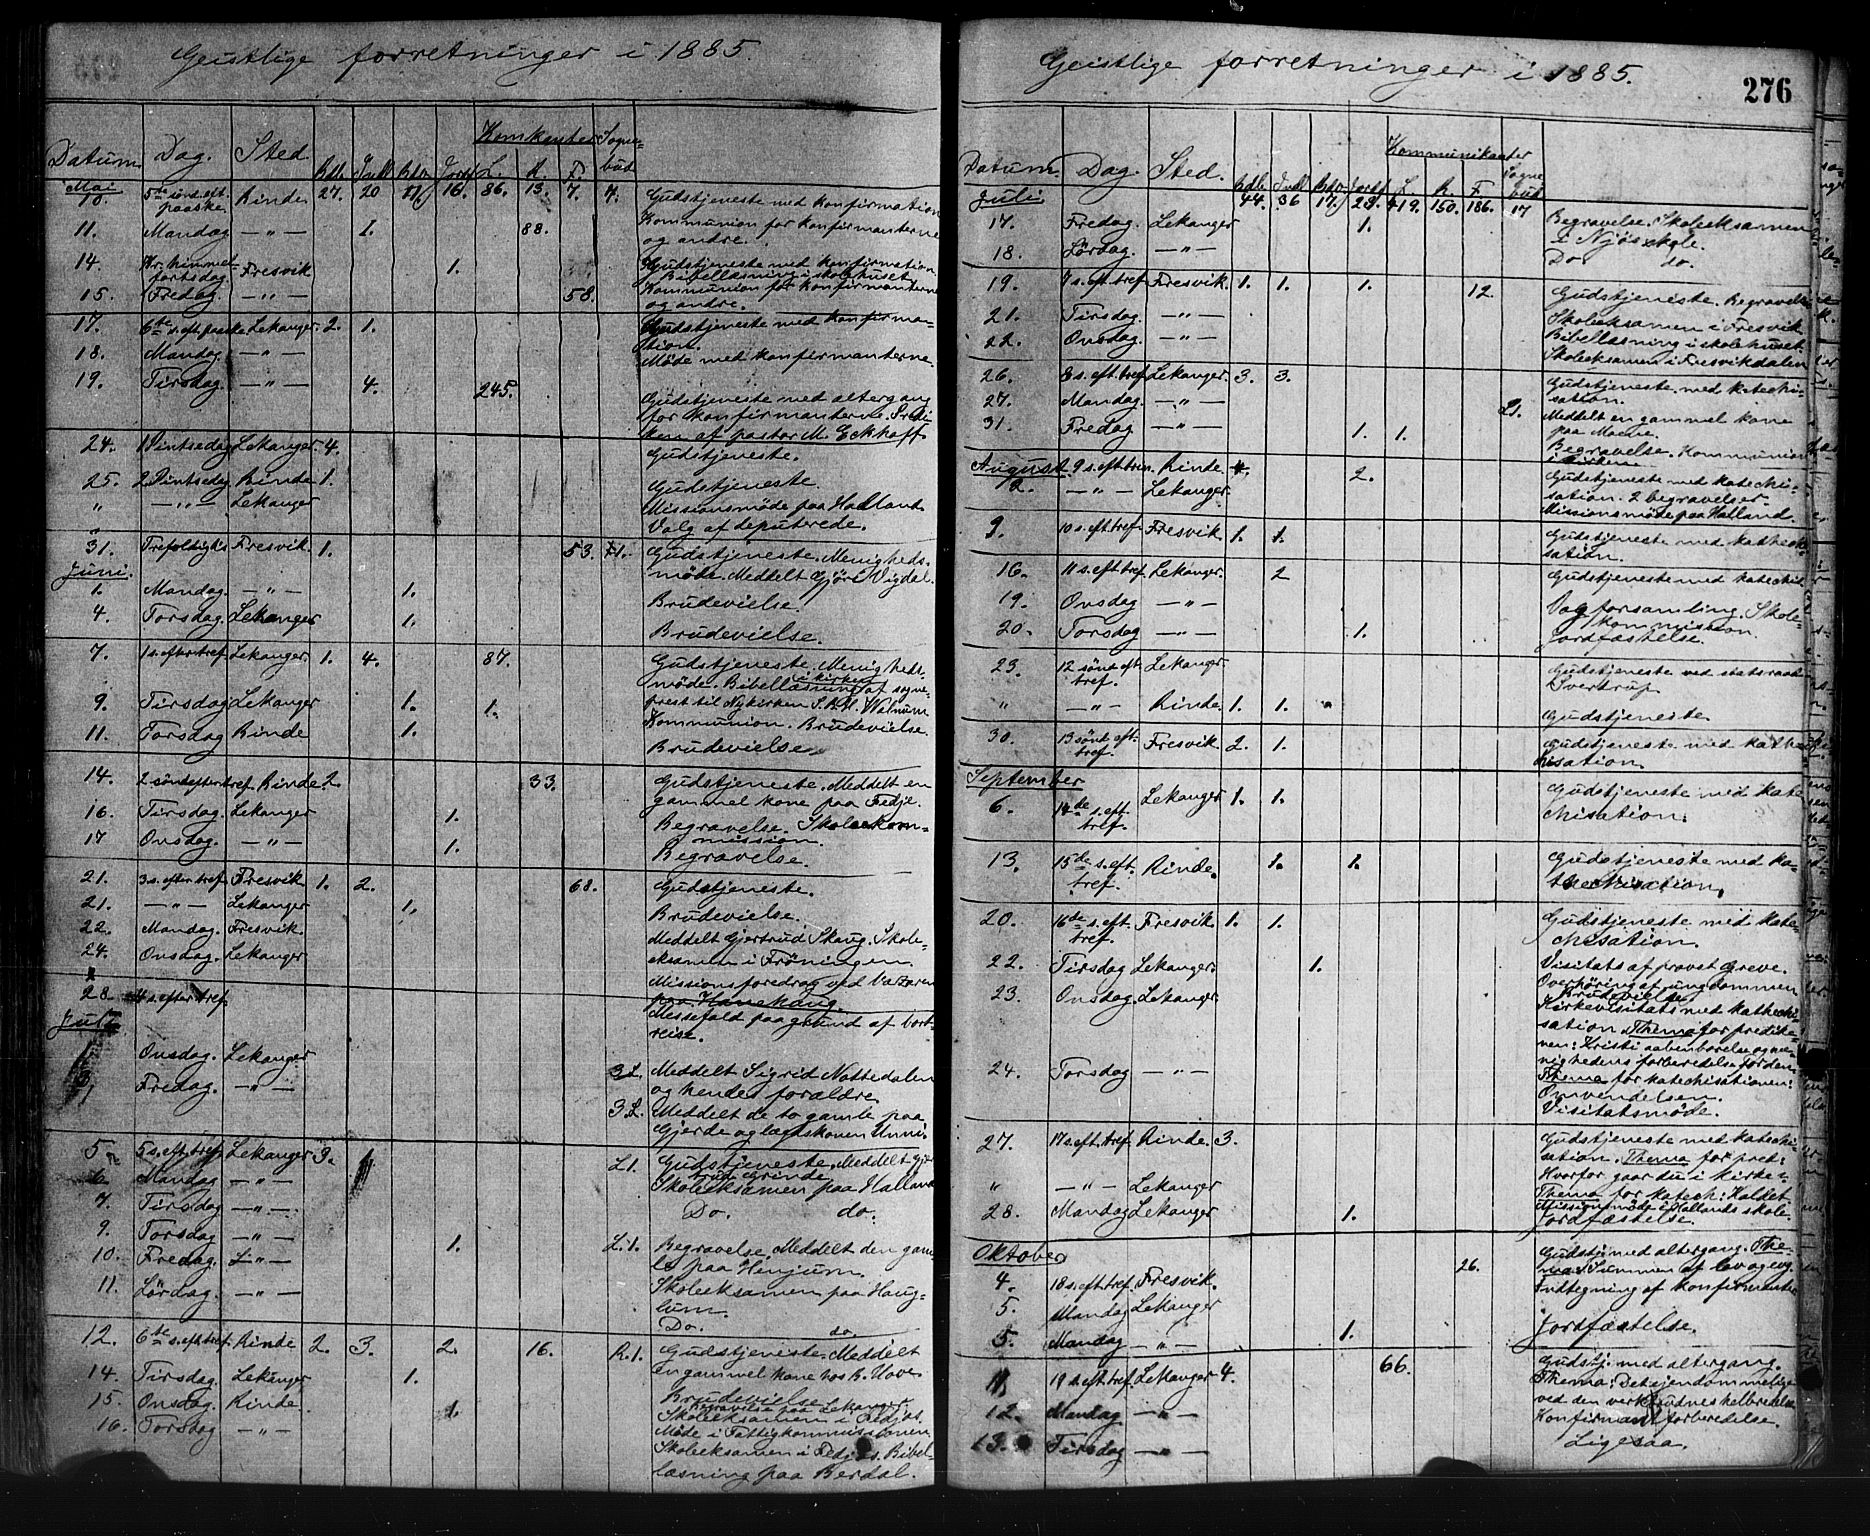 Geistlige forretninger i 1885.
Komkanter Sogne-
Datum. Dag. Sted. L. R. F. bud
Mai
10. 5te sönd. eft. Rinde 27. 20 16. 86. 13. 7. 7. Gudstjeneste med konfirmation
paaske
11. Mandag — " — 1. 88. Kommunion for konfirmanterne
og andre.
14. Kr. himmel- Fresvik 1. Gudstjeneste med konfirmation
fartsdag Bibellæsning i skolehuset
15. Fredag. — " — 58. Kommunion for konfirmanterne
og andre.
17. 6te s. eft. paaske Lekanger 2. 1. Gudstjeneste med konfirma-
tion.
18. Mandag. — " — Möde med konfirmanterne.
19. Tirsdag. — " — 4. 245. Gudstjeneste med altergang
for konfirmanterne. Prædi-
ken af pastor M. Eckhoff
24. 1 Pintsedag Lekanger 4. Gudstjeneste.
25. 2 Pintsedag Rinde 1. Gudstjeneste
" — " — Lekanger Missionsmöde paa Halland.
Valg af deputerede.
31. Trefoldighs Fresvik 1. 53. 1. Gudstjeneste. Menigheds-
Juni. möde. Meddelt Gjöri Vigdal.
1. Mandag. — " — 1. Brudevielse.
4. Torsdag Lekanger 1. Brudevielse.
7. 1 s. efter tref. Lekanger 1. 4. 87. Gudstjeneste. Menigheds-
i kirken
möde. Bibellæsning af sogne-
9. Tirsdag Lekanger 1. 1. prest til Nykirken Walnum
Kommunion. Brudevielse.
11. Torsdag Rinde 1. Brudevielse
14. 2 sönd efter tref. Rinde 2 33. Gudstjeneste. Meddelt en
gammel kone paa Fedje.
16. Tirsdag. Lekanger 1. Begravelse. Skolekom-
mission.
17 Onsdag. — " — 1. Begravelse.
21. 3 s. efter tref. Fresvik 1. 2. 68. Gudstjeneste.
21. — " — Lekanger 1. Brudevielse.
22. Mandag. Fresvik. Meddelt Gjertrud Skaug. Skole-
eksamen i Fröningen.
24. Onsdag. Lekanger Missionsforedrag
paa Hanekaug.
28. 4 s. efter tref. Messefald paagrund af bort-
reise.
Juli
Onsdag. Lekanger 3 L. Meddelt Sigrid Nattedalen
og hendes forældre.
Fredag. — " — 3 L. Meddelt de to gamle paa
Gjerde og lægdskonen Unni.
5. 5 s. eft. tref. Lekanger 3. L1. Gudstjeneste. Meddelt Gjer
trud Grinde
6. Mandag — " — Skoleeksamen paa Halland
7. Tirsdag — " — Do. do.
9. Torsdag — " — 1. L. 1. Begravelse. Meddelt den gam-
le paa Henjum.
10. Fredag. — " — Skoleeksamen paa Haug-
lum
11. Lördag. — " — Do. do.
12. 6te s. eft. tref. Rinde 2. 3. 2. 16. R. 1. Gudstjeneste. Meddelt
en gammel kone hos R. Hove
14. Tirsdag. Lekanger 1. Brudevielse
Begravelse paa Lekanger.
15. Onsdag. Rinde 1. Skoleeksamen i Fedjos.
Möde i Fattigkommissionen
16. Torsdag — " — Skoleeksamen i Fedjos. Bibel-
læsning paa Berdal.
Geistlige forretninger i 1885.
276
Kommunikanter
Datum. Dag. Sted. L. R. F. Sogne
bud
Juli 44. 36 17. 28. 419. 150. 186. 17
17. Fredag. Lekanger 1. Begravelse. Skoleeksamen
i Njös skole.
18. Lördag. — " — Do do.
19. 7 s. eft. tref. Fresvik. 1. 1. 1. 12. Gudstjeneste. Begravelse
21. Tirsdag. — " — Skoleeksamen i Fresvik
Bibellæsning i skolehuset.
22. Onsdag. — " — Skoleeksamen i Fresvikdalen
26. 8 s. eft. tref. Lekanger. 3. 3. Gudstjeneste med katechi-
sation.
27. Mandag. — " — Meddelt en gammel kone
paa Moene.
31. Fredag — " — 1. 1. Begravelse. Kommunion
i kirken
August 9 s. eft. tref. Rinde 2. Gudstjeneste med katechi-
2. — " — Lekanger. sation. 2 begravelser
Missionsmöde paa Halland.
9. 10 s. eft. tref. Fresvik 1. 1. Gudstjeneste med kateche-
sation.
16. 11 s. eft. tref. Lekanger. 2 Gudstjeneste med katechis.
19. Onsdag — " — Valgforsamling. Skole-
kommission
20. Torsdag — " — 1. Jordfæstelse.
23. 12 sönd eft. Lekanger Gudstjeneste ved statsraad
tref. Svertrup
" — " — Rinde. 1. 1. Gudstjeneste
30. 13 sönd. eft. Fresvik 2. 1. Gudstjeneste med kathe-
tref. kisation.
September
6. 14de s. eft. Lekanger 1. 1. Gudstjeneste med kate
tref. chisation.
13. 15de s. eft. Rinde. 1. 1. Gudstjeneste med ka-
tref. thechisation.
20. 16de s. eft. Fresvik 1. 1. Gudstjeneste med kate-
tref. chisation.
22. Tirsdag Lekanger. 1. Visitats af provst Greve.
Overhöring af ungdommen
Brudevielse
23. Onsdag Lekanger. Kirkevisitats med kathechi-
sation. Thema for predike-
nen: Kristi aabenbarelse og me-
nighedens forberedelse for den.
24. Torsdag — " — Thema for katechisationen:
Omvendelsen.
Visitatsmöde.
27. 17 s. eft. tref. Rinde. 3. Gudstjeneste med katechi-
sation. Thema for pred:
Hvorfor gaar du i kirke-
" — " — Lekanger Thema for katech: Kaldet
Missionsmöde i Hallands skole.
28. Mandag Lekanger 1. Jordfæstelse.
Oktober 26. Gudstj: med altergang. The-
ma: Summen af lov og evg
4. 18 s. eft. tref. Fresvik. Indtegning af konfirmanter
5. Mandag Lekanger
5. Mandag — " — 1. Jordfæstelse.
11. 19 s. eft. tref. Lekanger 4. 66. Gudstj: med altergang.
Thema: Det eiendommelige
ved den verkbrudnes helbredelse
12. Mandag — " — Konfirmantforberedelse.
13. Tirsdag — " — Ligesaa.